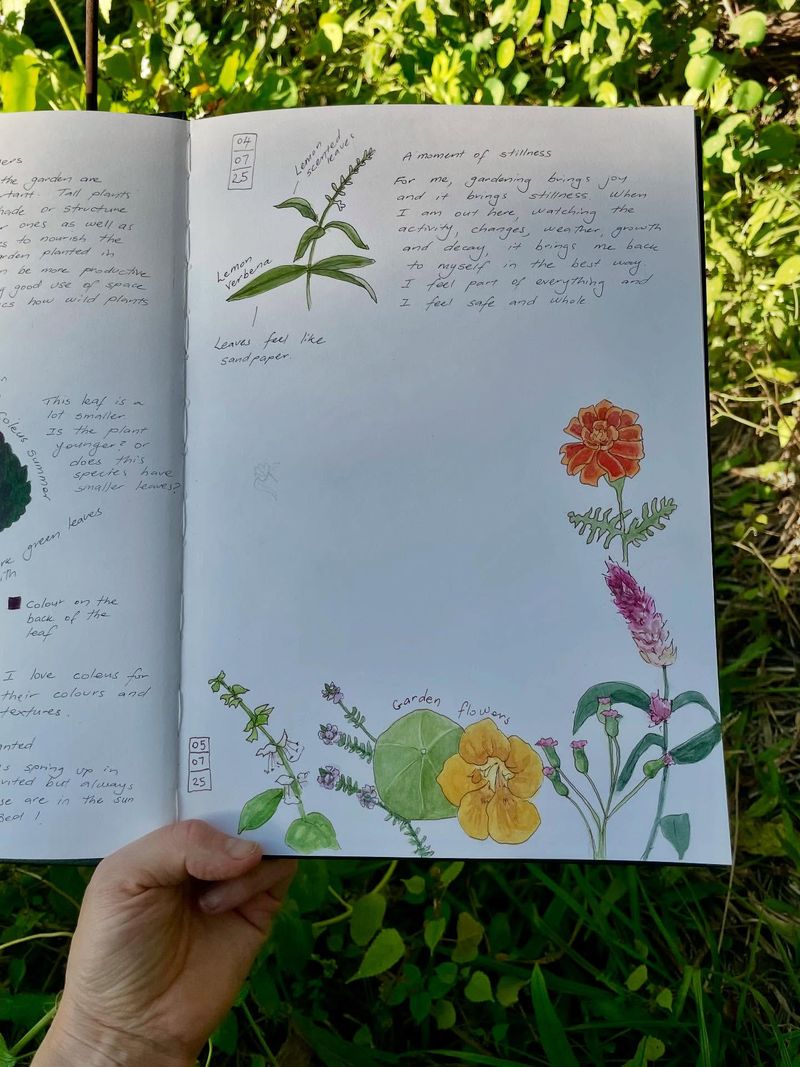 the garden are
Tall plants
or structure
ones as well as
to nourish the
planted in
be more productive
good use of space
how wild plants
This leaf is a
lot smaller
Is the plant
younger? or
does this
species have
smaller leaves?
Coleus summer
green leaves
Colour on the
back of the
leaf
I love coleus for
their colours and
textures.
spring up in
but always
are in the sun
04
07
25
Lemon
scented
leaves
Lemon
verbena
Leaves feel like
sandpaper.
A moment of stillness
For me, gardening brings joy
and it brings stillness. When
I am out here, watching the
activity, changes, weather, growth
and decay, it brings me back
to myself in the best way
I feel part of everything and
I feel safe and whole
Garden flowers
05
07
25